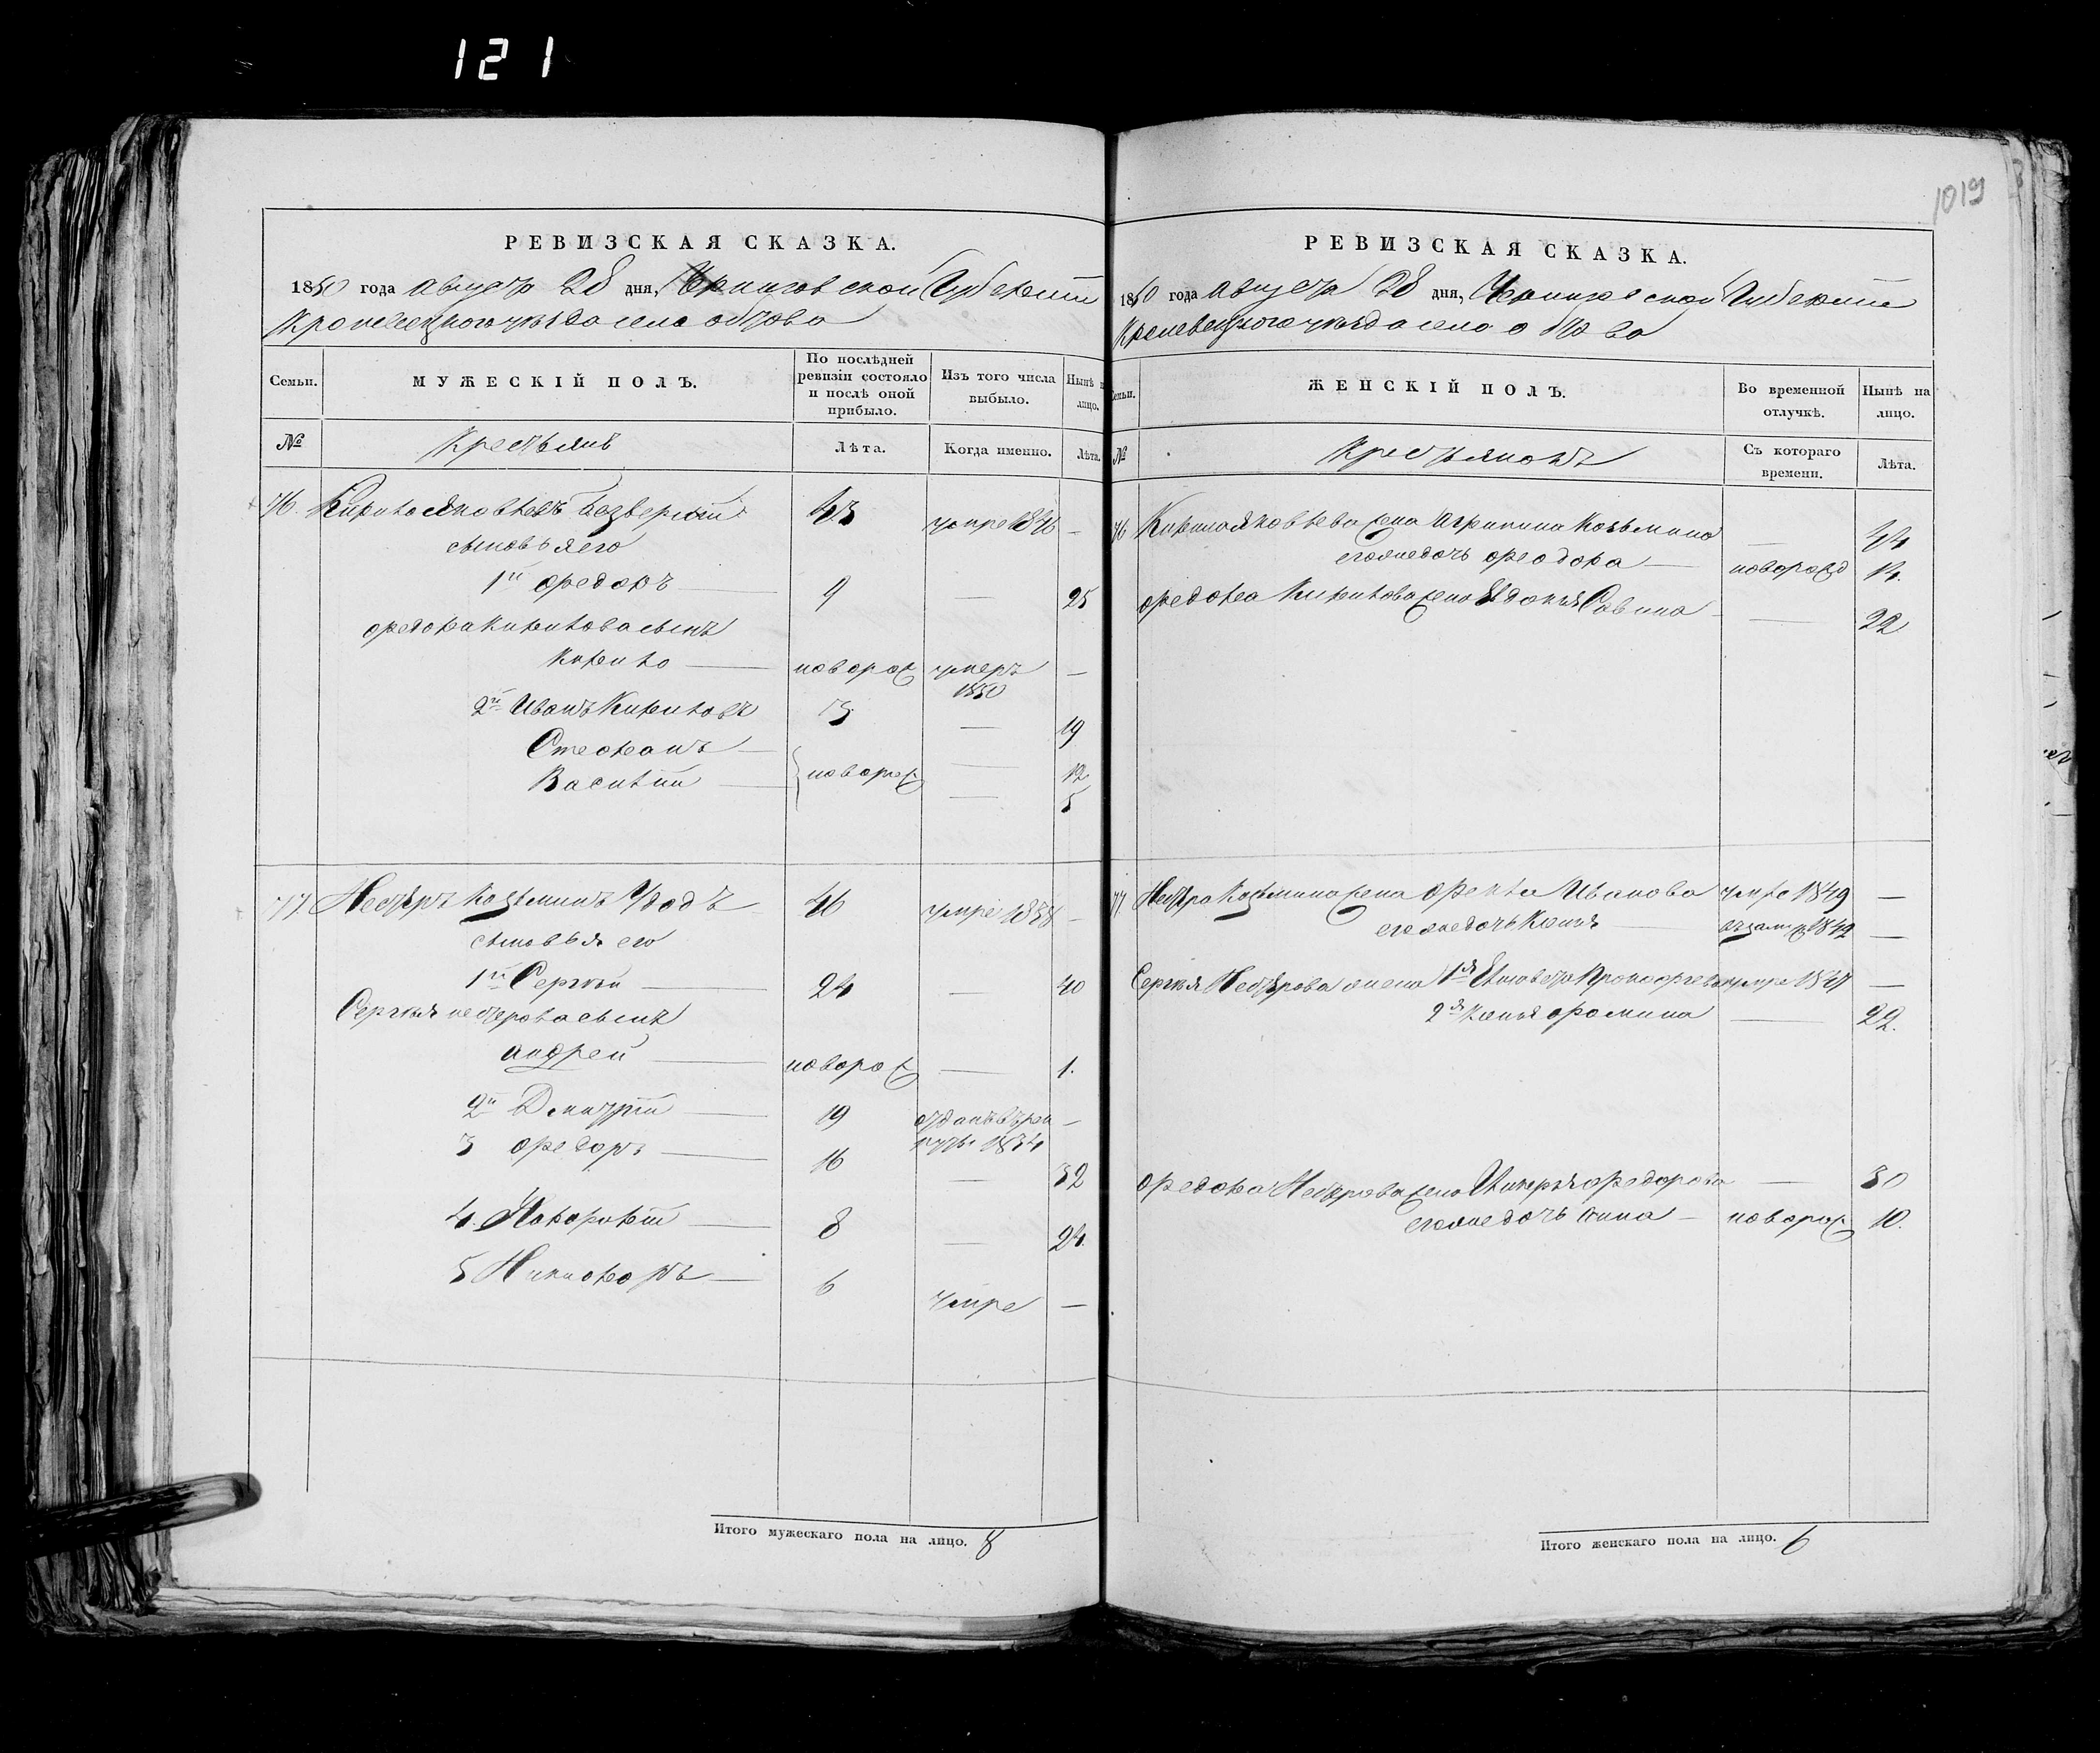 121
1019
РЕВИЗСКАЯ СКАЗКА.
1850 года августа 28 дня, Черниговской Губернии
Кролевецкого уезда села
Семьи. МУЖЕСКІЙ ПОЛЪ. По послѣдней ревизіи состояло и послѣ оной прибыло. Изъ того числа выбыло. Нынѣ на лицо.
№ Крестьянъ Лѣта. Когда именно. Лѣта.
76. Кирило Яковлевъ 43 умре 1846 —
сыновья его
1й Федоръ 9 — 25
Федора Кирилова сынъ
Кирило новорож умеръ 1850 —
2й Иванъ Кириловъ 3 — 19
Стефанъ — 12
Василий новорож — 5
77. Петръ Козьминъ Удодъ 46 умре 1838 —
сыновья его
1й Сергѣй 24 — 40
Сергѣя Петрова сынъ
Андрей новорож — 1.
2й Дмитрий 19 отданъ въ рекруты 1834 —
3 Федоръ 16 — 32
4. 8 — 24.
5 Никифоръ 6 умре —
Итого мужескаго пола на лицо. 8
РЕВИЗСКАЯ СКАЗКА.
1850 года августа 28 дня, Черниговской Губернии
Кролевецкого уезда село
Семьи. ЖЕНСКІЙ ПОЛЪ. Во временной отлучкѣ. Нынѣ на лицо.
№ Крестьянокъ Съ котораго времени. Лѣта.
76 Кирила Яковлева жена Агрипина Козьмина — 44
его же дочь Феодора новорожд 14.
Федора Кирилова жена Евдокия Савина — 22
77 Петра Козьмина жена Фекла Иванова умре 1849 —
его же дочь Ксения въ замуж 1842 —
Сергѣя Петрова жена 1я Елисавета Прокофьева умре 1847 —
2я Ксения Фомина — 22.
Федора Петрова жена Гликерия Федорова — 30
его же дочь Анна новорож 10.
Итого женскаго пола на лицо. 6